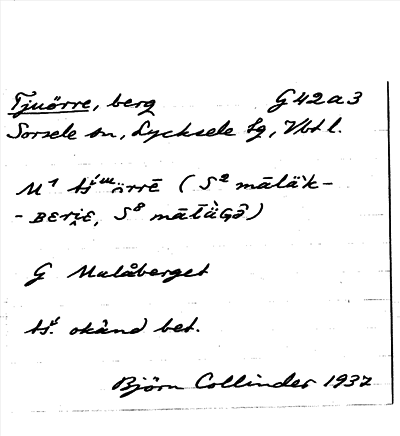 Tjuörre, berg G42a3
Sorsele sn, Lycksele lg, Vbtl.
(S² māläk-
-BERI̭E, S⁸
G Malåberget
okänd bet.
Björn Collinder 1937